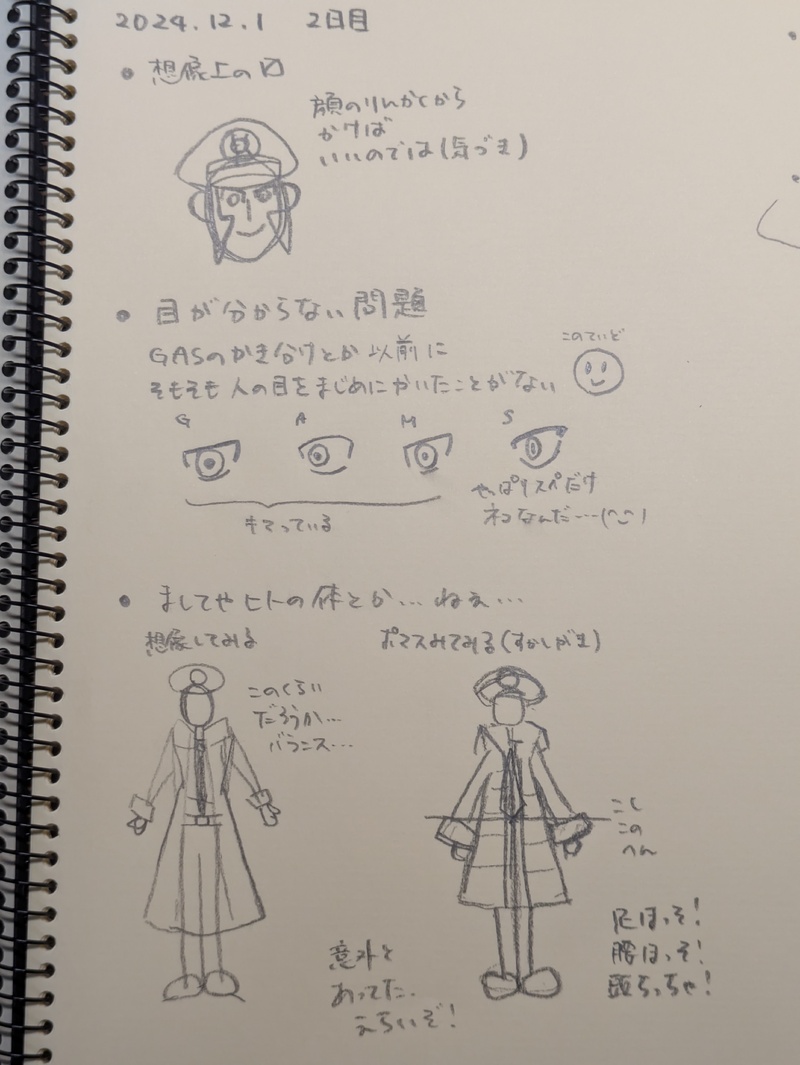 2024.12.1 2日目
• 想像上の
顔のりんかくから
かけば
いいのでは(気づき)
• 目が分からない問題
GASのかき分けとか以前に
そもそも人の目をまじめにかいたことがない
このていど
G A M S
やっぱりスペだけ
ネコなんだ…(^_^)
キマっている
• ましてやヒトの体とか…ねぇ…
想像してみる
ポマスみてみる(すかしがき)
このくらい
だろうか…
バランス…
こし
この
へん
意外と
あってた。
えらいぞ!
足ほっそ!
腰ほっそ!
頭ちっちゃ!